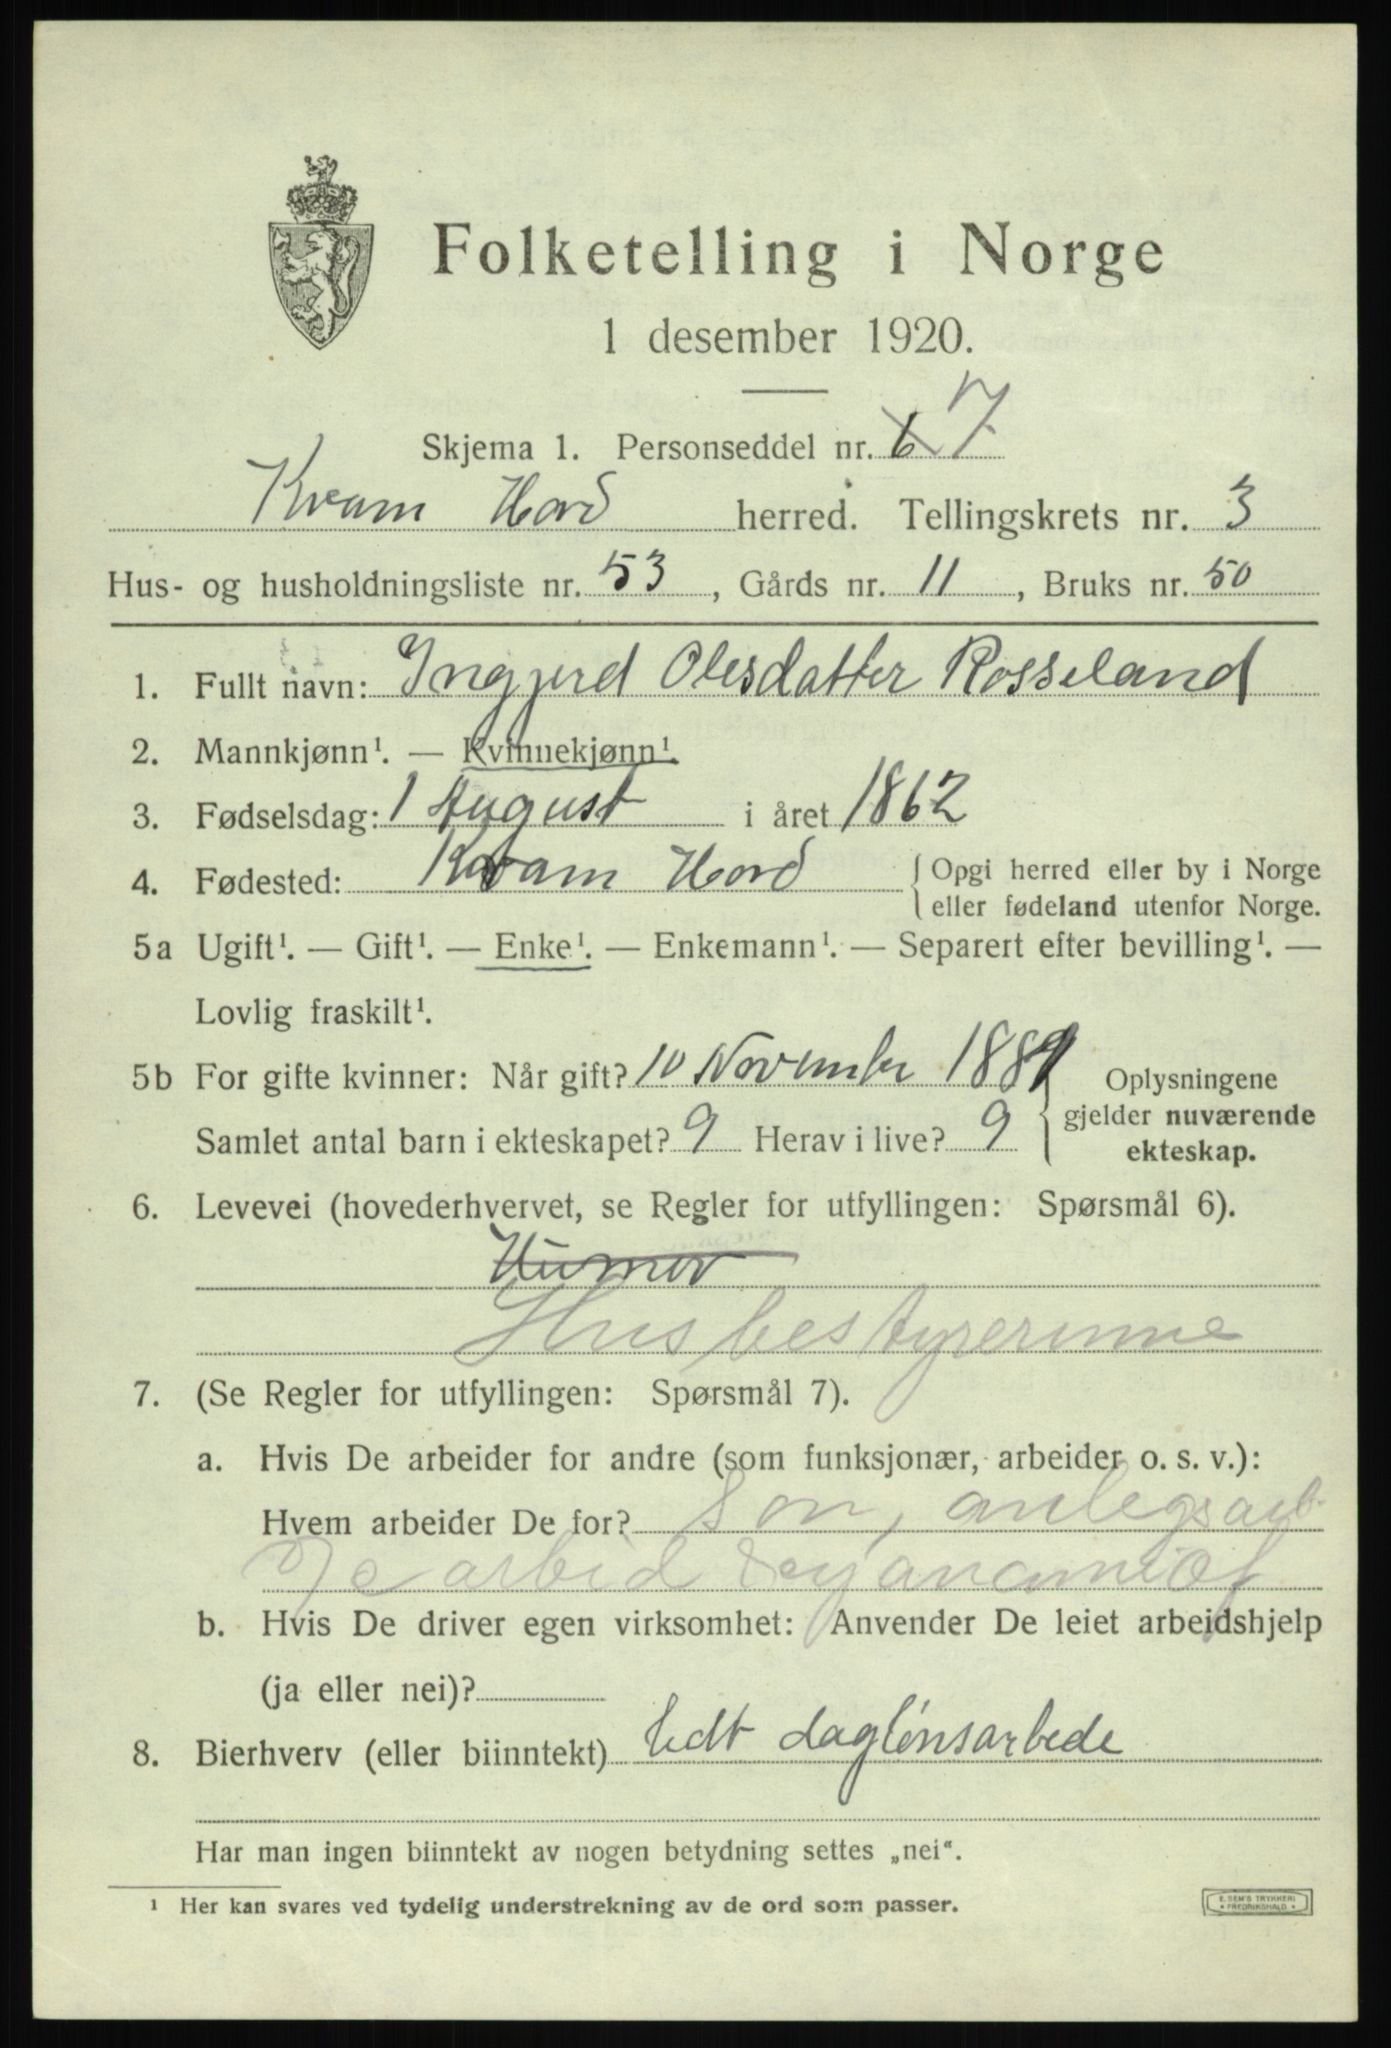 Folketelling i Norge
1 desember 1920.
Skjema 1. Personseddel nr. 6 7
Kvam Hord herred. Tellingskrets nr. 3
Hus- og husholdningsliste nr. 53, Gårds nr. 11, Bruks nr. 50
1. Fullt navn: Ingjerd Olesdatter Rosseland
2. Mannkjønn¹. — Kvinnekjønn¹.
3. Fødselsdag: 1 August i året 1862
4. Fødested: Kvam Hord { Opgi herred eller by i Norge
eller fødeland utenfor Norge.
5a Ugift¹. — Gift¹. — Enke¹. — Enkemann¹. — Separert efter bevilling¹. —
Lovlig fraskilt¹.
5b For gifte kvinner: Når gift? 10 November 1889
Samlet antal barn i ekteskapet? 9 Herav i live? 9
Oplysningene
gjelder nuværende
ekteskap.
6. Levevei (hovederhvervet, se Regler for utfyllingen: Spørsmål 6).
Husmor
Husbestyrerinne
7. (Se Regler for utfyllingen: Spørsmål 7).
a. Hvis De arbeider for andre (som funksjonær, arbeider o. s. v.):
Hvem arbeider De for? son, anlegsarb.
arbeid
b. Hvis De driver egen virksomhet: Anvender De leiet arbeidshjelp
(ja eller nei)?
8. Bierhverv (eller biinntekt) lidt daglønsarbede
Har man ingen biinntekt av nogen betydning settes „nei“.
¹ Her kan svares ved tydelig understrekning av de ord som passer.
E. SEM'S TRYKKERI
FREDRIKSHALD